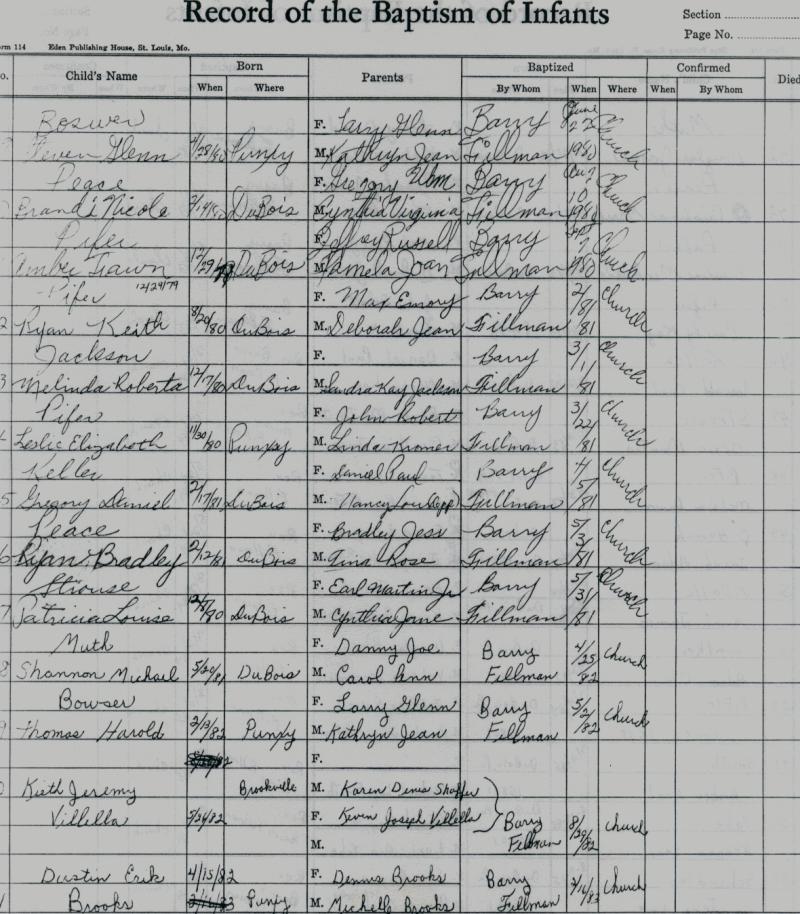 Record of the Baptism of Infants
Section
Page No.
orm 114 Eden Publishing House, St. Louis, Mo.
o. Child's Name Born Parents Baptized Confirmed Died
When Where By Whom When Where When By Whom
F. Larry Glenn Barry June 22
Glenn 4/28/80 Punxy M. Kathryn Jean Fillman 1980 Church
Peace F. Gregory Wm Barry 10
Brandi Nicole DuBois M. Cynthia Virginia Fillman 1980 Church
Pifer F. Jeffrey Russell Barry 7
Amber Dawn 12/29/ DuBois M. Pamela Joan Fillman 1980 Church
Pifer 12/29/79 F. Max Emory Barry 2/ Church
2 Ryan Keith 8/20/80 DuBois M. Deborah Jean Fillman 81
Jackson F. Barry 3/1/ Church
3 Melinda Roberta 12/7/80 DuBois M. Sandra Kay Jackson Fillman 81
Pifer F. John Robert Barry 3/22/ Church
Leslie Elizabeth 11/30/80 Punxsy M. Linda Kromer Fillman 81
Keller F. Daniel Paul Barry 4/5/ Church
5 Gregory Daniel 2/17/81 DuBois M. Nancy Lou (Depp) Fillman /81
Peace F. Bradley Jess Barry 5/3/ Church
6 Ryan Bradley 2/12/81 DuBois M. Tina Rose Fillman /81
Strouse F. Earl Martin Jr Barry 5/31/ Church
7 Patricia Louise DuBois M. Cynthia Jane Fillman /81
Muth F. Danny Joe Barry 4/25/ Church
8 Shannon Michael DuBois M. Carol Ann Fillman 82
Bowser F. Larry Glenn Barry 5/2/ Church
9 Thomas Harold 2/13/82 Punxy M. Kathryn Jean Fillman /82
F.
Kieth Jeremy Brookville M. Karen Denis Shaffer
Villella F. Kevin Joseph Villella Barry 8/29/ Church
M. Fillman 82
Dustin Erik 4/15/82 F. Dennis Brooks Barry Church
Brooks Punxy M. Michelle Brooks Fillman